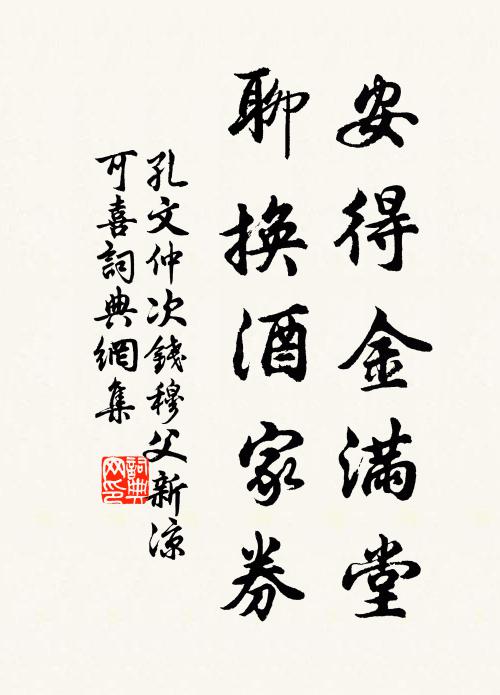 安得金滿堂
聊換酒家券
孔文仲次錢穆父新涼
可喜詞典網集
詞典網印